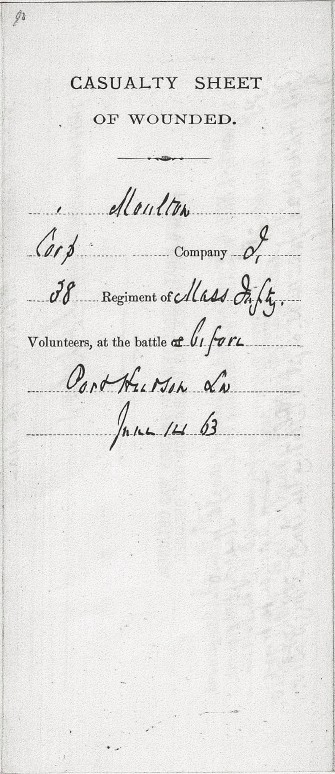 CASUALTY SHEET
OF WOUNDED.
Moulton
Corp Company I,
38 Regiment of Mass Infty.
Volunteers, at the battle of before
Port Hudson La
June 14 63